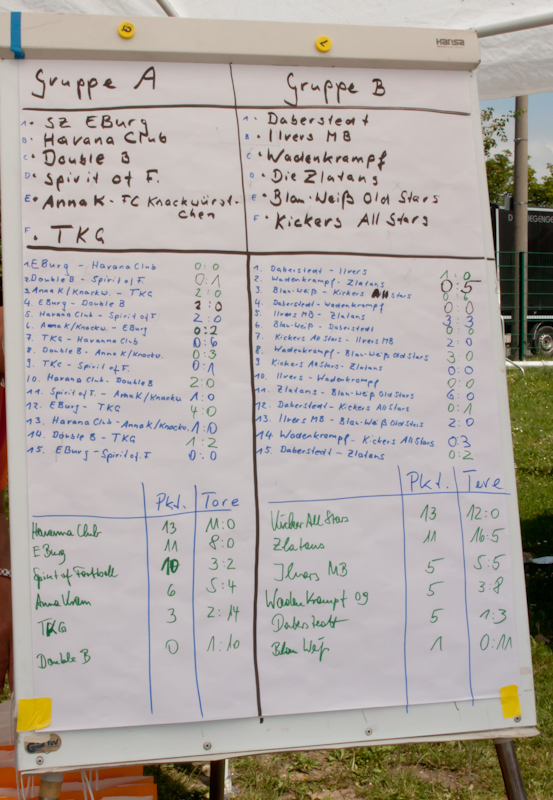 HANSA
Gruppe A
A • SZ EBurg
B • Havana Club
C • Double B
D • Spirit of F.
E • Anna K - FC Knackwürst-
chen
F • TKG
Gruppe B
A • Daberstedt
B • Ilvers MB
C • Wadenkrampf
D • Die Zlatans
E • Blau-Weiß Old Stars
F • Kickers All Stars
1. EBurg - Havana Club 0:0
2. Double B - Spirit of F. 0:1
3. Anna K/Knackw. - TKG 2:0
4. EBurg - Double B 2:0
5. Havana Club - Spirit of F. 2:0
6. Anna K/Knackw. - EBurg 0:2
7. TKG - Havana Club 0:6
8. Double B - Anna K/Knackw. 0:3
9. TKG - Spirit of F. 0:1
10. Havana Club - Double B 2:0
11. Spirit of F. - Anna K/Knackw. 1:0
12. EBurg - TKG 4:0
13. Havana Club - Anna K/Knackw. 1:0
14. Double B - TKG 1:2
15. EBurg - Spirit of F. 0:0
1. Daberstedt - Ilvers 1:0
2. Wadenkrampf - Zlatans 0:5
3. Blau-Weiß - Kickers All Stars 0:6
4. Daberstedt - Wadenkrampf 0:0
5. Ilvers MB - Zlatans 3:3
6. Blau-Weiß - Daberstedt 0:0
7. Kickers All Stars - Ilvers MB 2:0
8. Wadenkrampf - Blau-Weiß Old Stars 3:0
9. Kickers All Stars - Zlatans 0:0
10. Ilvers - Wadenkrampf 0:0
11. Zlatans - Blau-Weiß Old Stars 6:0
12. Daberstedt - Kickers All Stars 0:1
13. Ilvers MB - Blau-Weiß Old Stars 2:0
14. Wadenkrampf - Kickers All Stars 0:3
15. Daberstedt - Zlatans 0:2
Pkt. Tore
Havanna Club 13 11:0
EBurg 11 8:0
Spirit of Football 10 3:2
Anna Kram 6 5:4
TKG 3 2:14
Double B 0 1:10
Pkt. Tore
Kicker All Stars 13 12:0
Zlatans 11 16:5
Ilvers MB 5 5:5
Wadenkrampf 09 5 3:8
Daberstedt 5 1:3
Blau Weiß 1 0:11